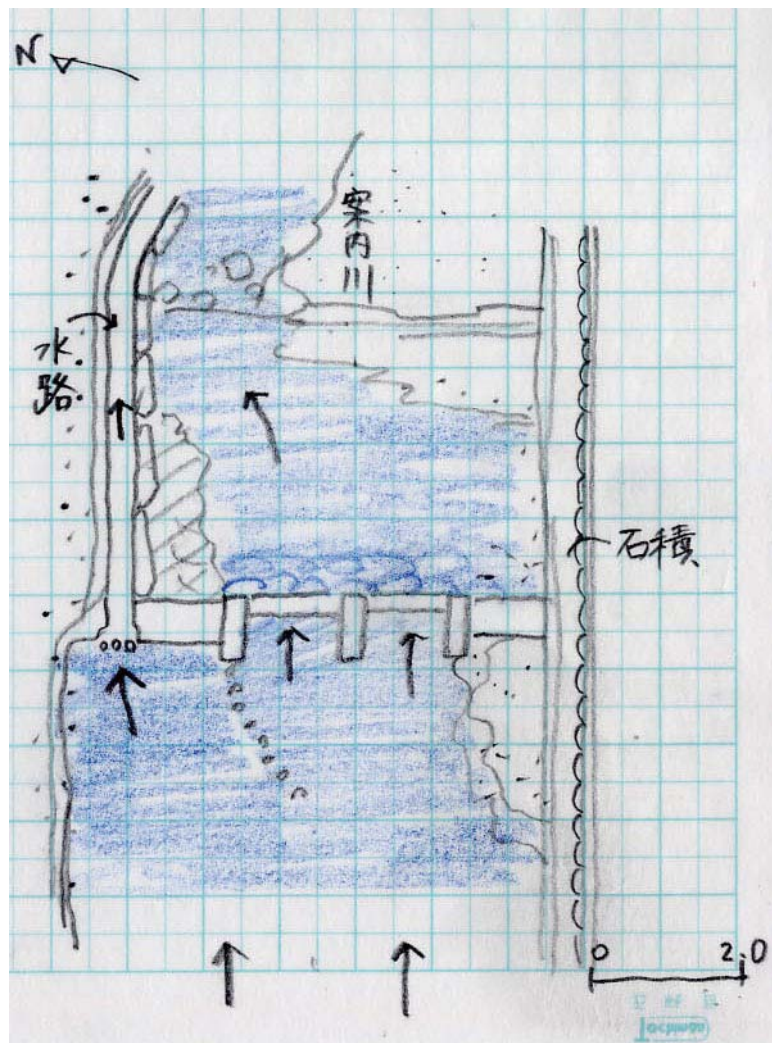 N
案内川
水路
石積
0 2.0